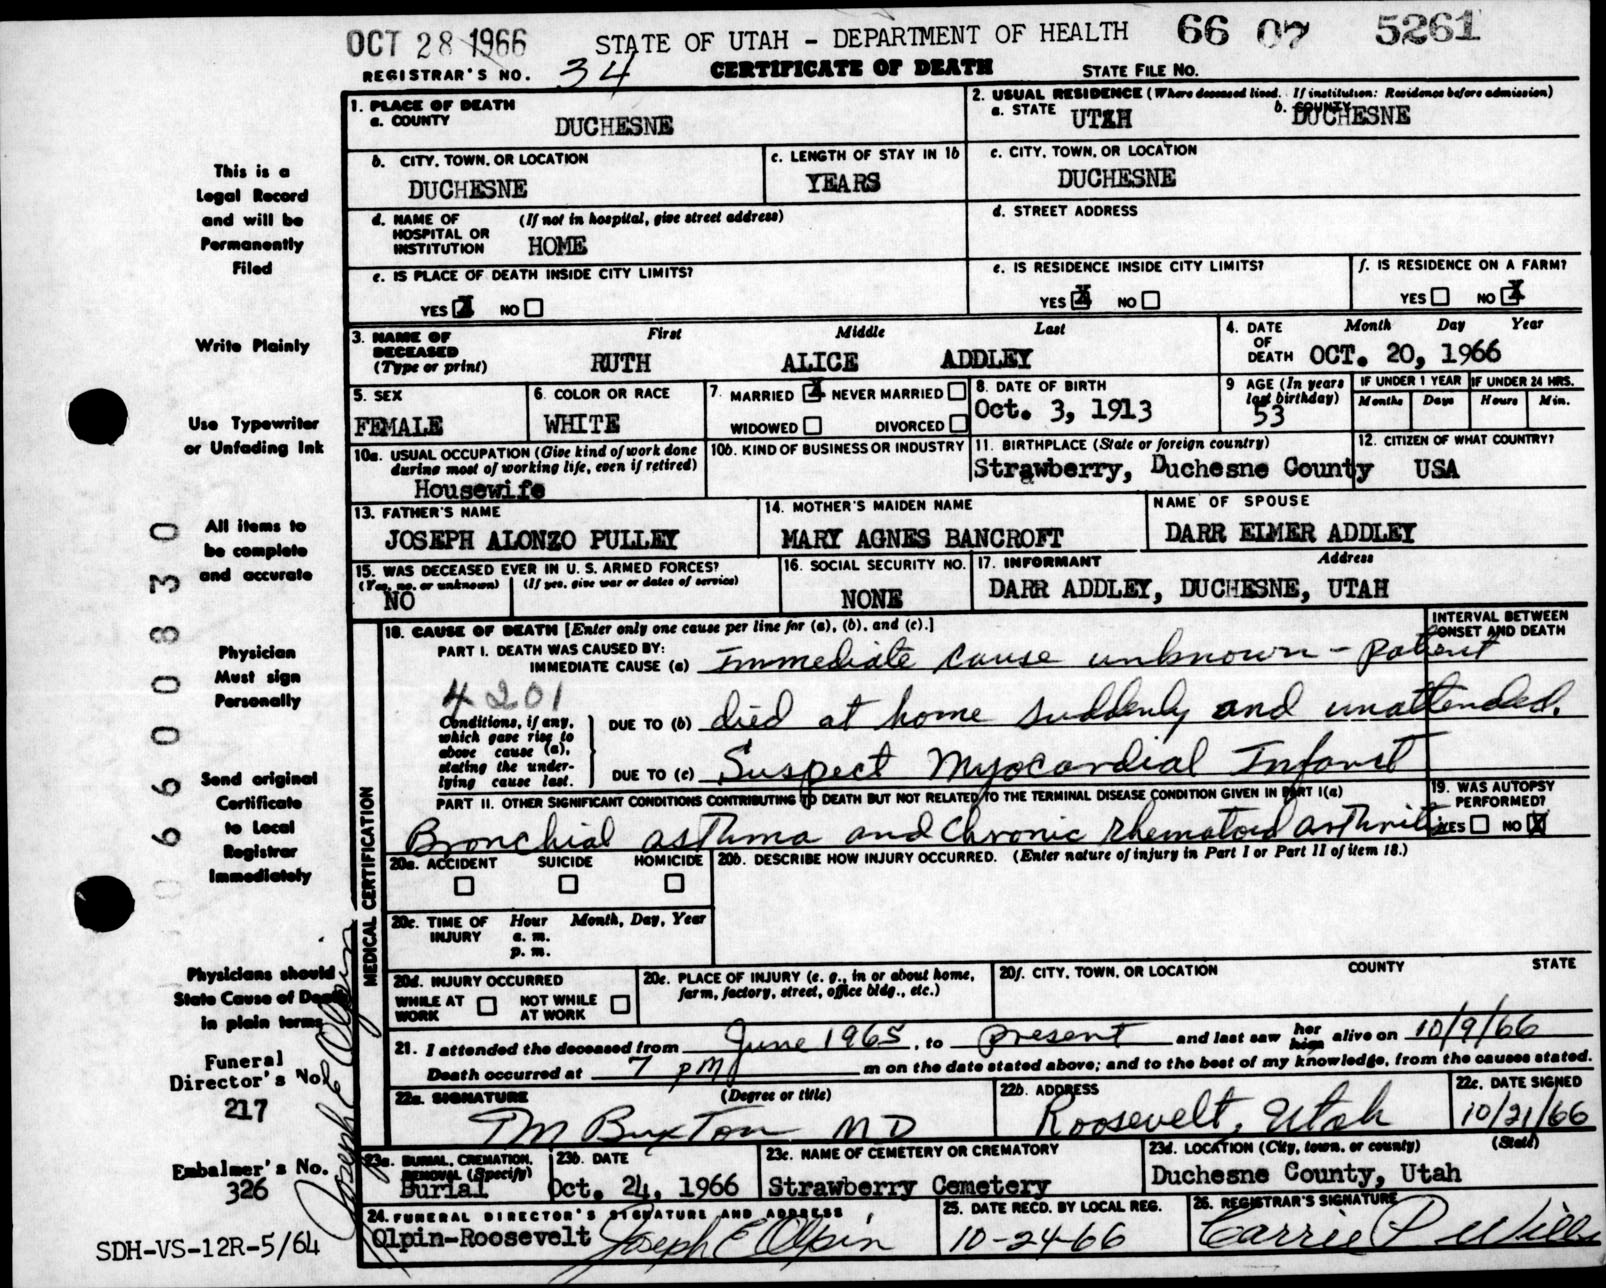 OCT 28 1966 STATE OF UTAH - DEPARTMENT OF HEALTH 66 07 5261
REGISTRAR'S NO. 34 CERTIFICATE OF DEATH STATE FILE NO.
1. PLACE OF DEATH
a. COUNTY DUCHESNE
2. USUAL RESIDENCE (Where deceased lived. If institution: Residence before admission)
a. STATE UTAH b. COUNTY DUCHESNE
b. CITY, TOWN, OR LOCATION DUCHESNE
c. LENGTH OF STAY IN 1b YEARS
c. CITY, TOWN, OR LOCATION DUCHESNE
d. NAME OF HOSPITAL OR INSTITUTION (If not in hospital, give street address) HOME
d. STREET ADDRESS
e. IS PLACE OF DEATH INSIDE CITY LIMITS?
YES X NO
e. IS RESIDENCE INSIDE CITY LIMITS?
YES X NO
f. IS RESIDENCE ON A FARM?
YES NO X
3. NAME OF DECEASED (Type or print) First Middle Last
RUTH ALICE ADDLEY
4. DATE OF DEATH Month Day Year
OCT. 20, 1966
5. SEX FEMALE
6. COLOR OR RACE WHITE
7. MARRIED X NEVER MARRIED
WIDOWED DIVORCED
8. DATE OF BIRTH Oct. 3, 1913
9 AGE (In years last birthday) 53
IF UNDER 1 YEAR Months Days
IF UNDER 24 HRS. Hours Min.
10a. USUAL OCCUPATION (Give kind of work done during most of working life, even if retired)
Housewife
10b. KIND OF BUSINESS OR INDUSTRY
11. BIRTHPLACE (State or foreign country)
Strawberry, Duchesne County
12. CITIZEN OF WHAT COUNTRY?
USA
13. FATHER'S NAME
JOSEPH ALONZO PULLEY
14. MOTHER'S MAIDEN NAME
MARY AGNES BANCROFT
NAME OF SPOUSE
DARR ELMER ADDLEY
15. WAS DECEASED EVER IN U. S. ARMED FORCES?
(Yes, no, or unknown) (If yes, give war or dates of service)
NO
16. SOCIAL SECURITY NO.
NONE
17. INFORMANT Address
DARR ADDLEY, DUCHESNE, UTAH
MEDICAL CERTIFICATION
18. CAUSE OF DEATH [Enter only one cause per line for (a), (b), and (c).]
INTERVAL BETWEEN ONSET AND DEATH
PART I. DEATH WAS CAUSED BY:
IMMEDIATE CAUSE (a) Immediate cause unknown - patient
4201
Conditions, if any, which gave rise to above cause (a), stating the underlying cause last.
DUE TO (b) died at home suddenly and unattended.
DUE TO (c) Suspect Myocardial Infarct
PART II. OTHER SIGNIFICANT CONDITIONS CONTRIBUTING TO DEATH BUT NOT RELATED TO THE TERMINAL DISEASE CONDITION GIVEN IN PART I(a)
Bronchial asthma and Chronic rhematoid arthritis
19. WAS AUTOPSY PERFORMED?
YES NO X
20a. ACCIDENT SUICIDE HOMICIDE
20b. DESCRIBE HOW INJURY OCCURRED. (Enter nature of injury in Part I or Part II of item 18.)
20c. TIME OF INJURY Hour Month, Day, Year
a. m.
p. m.
20d. INJURY OCCURRED
WHILE AT WORK NOT WHILE AT WORK
20e. PLACE OF INJURY (e. g., in or about home, farm, factory, street, office bldg., etc.)
20f. CITY, TOWN, OR LOCATION COUNTY STATE
21. I attended the deceased from June 1965, to present and last saw her him alive on 10/9/66
Death occurred at 7 pm m on the date stated above; and to the best of my knowledge, from the causes stated.
22a. SIGNATURE (Degree or title)
TM Buxton MD
22b. ADDRESS
Roosevelt, Utah
22c. DATE SIGNED
10/21/66
23a. BURIAL, CREMATION, REMOVAL (Specify)
Burial
23b. DATE
Oct. 24, 1966
23c. NAME OF CEMETERY OR CREMATORY
Strawberry Cemetery
23d. LOCATION (City, town, or county) (State)
Duchesne County, Utah
24. FUNERAL DIRECTOR'S SIGNATURE AND ADDRESS
Olpin-Roosevelt Joseph E Olpin
25. DATE RECD. BY LOCAL REG.
10-24-66
26. REGISTRAR'S SIGNATURE
Carrie P Wills
This is a
Legal Record
and will be
Permanently
Filed
Write Plainly
Use Typewriter
or Unfading Ink
All items to
be complete
and accurate
Physician
Must sign
Personally
Send original
Certificate
to Local
Registrar
Immediately
Physicians should
State Cause of Death
in plain terms
Funeral
Director's No.
217
Embalmer's No.
326
Joseph E Olpin
0 6 6 0 0 8 3 0
SDH-VS-12R-5/64